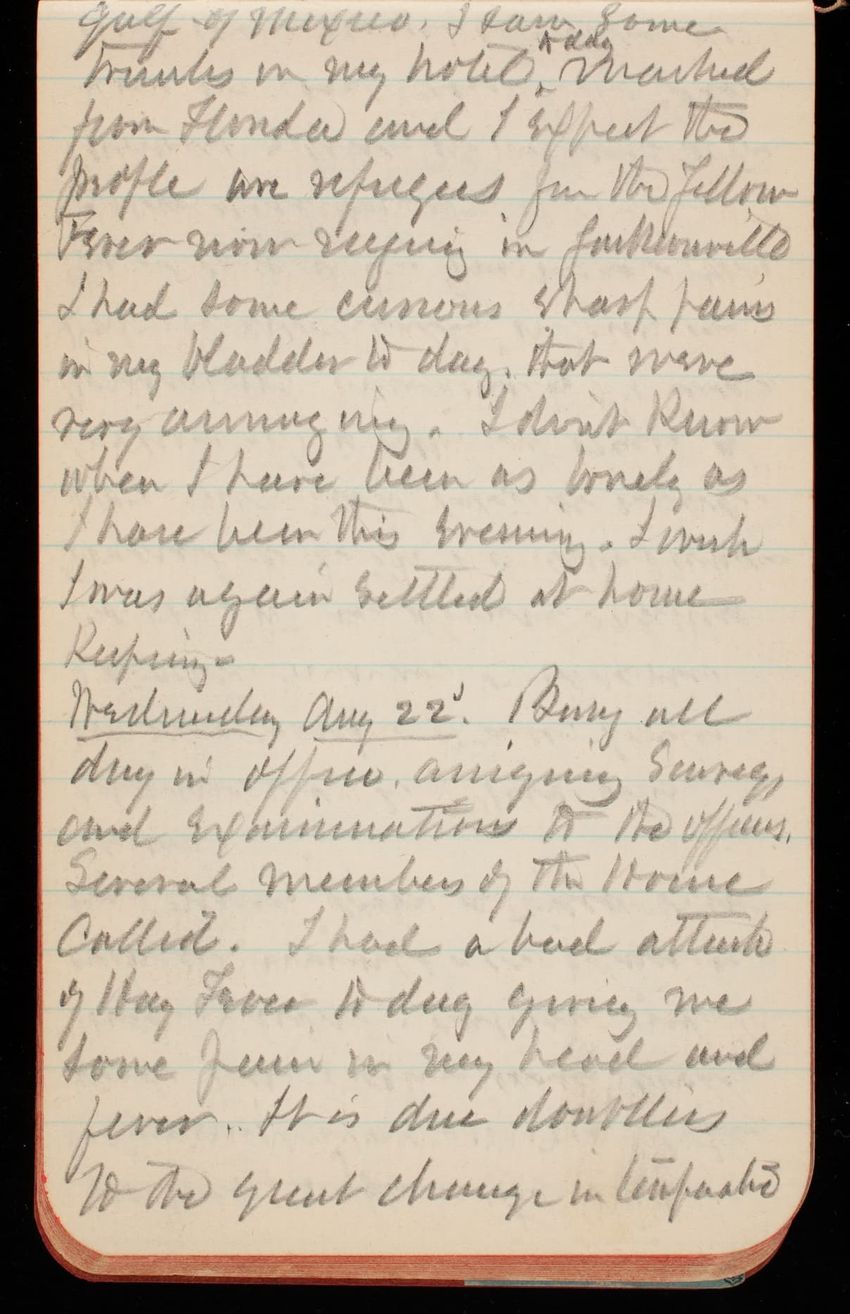 Gulf of Mexico. I saw some
to day
trunks in my hotel, marked
from Florida and I expect the
people are refugees from the Yellow
Fever now raging in Jacksonville
I had some curious sharp pains
in my bladder to day. that were
very annoying. I don't know
when I have been as lonely as
I have been this evening. I wish
I was again settled at home
Keeping.
Wednesday Aug 22'. Busy all
day in office. assigning Surveys
and Examinations to the officers.
Several members of the House
Called. I had a bad attack
of Hay Fever to day giving me
some pain in my head and
fever. It is due doubtless
to the great change in